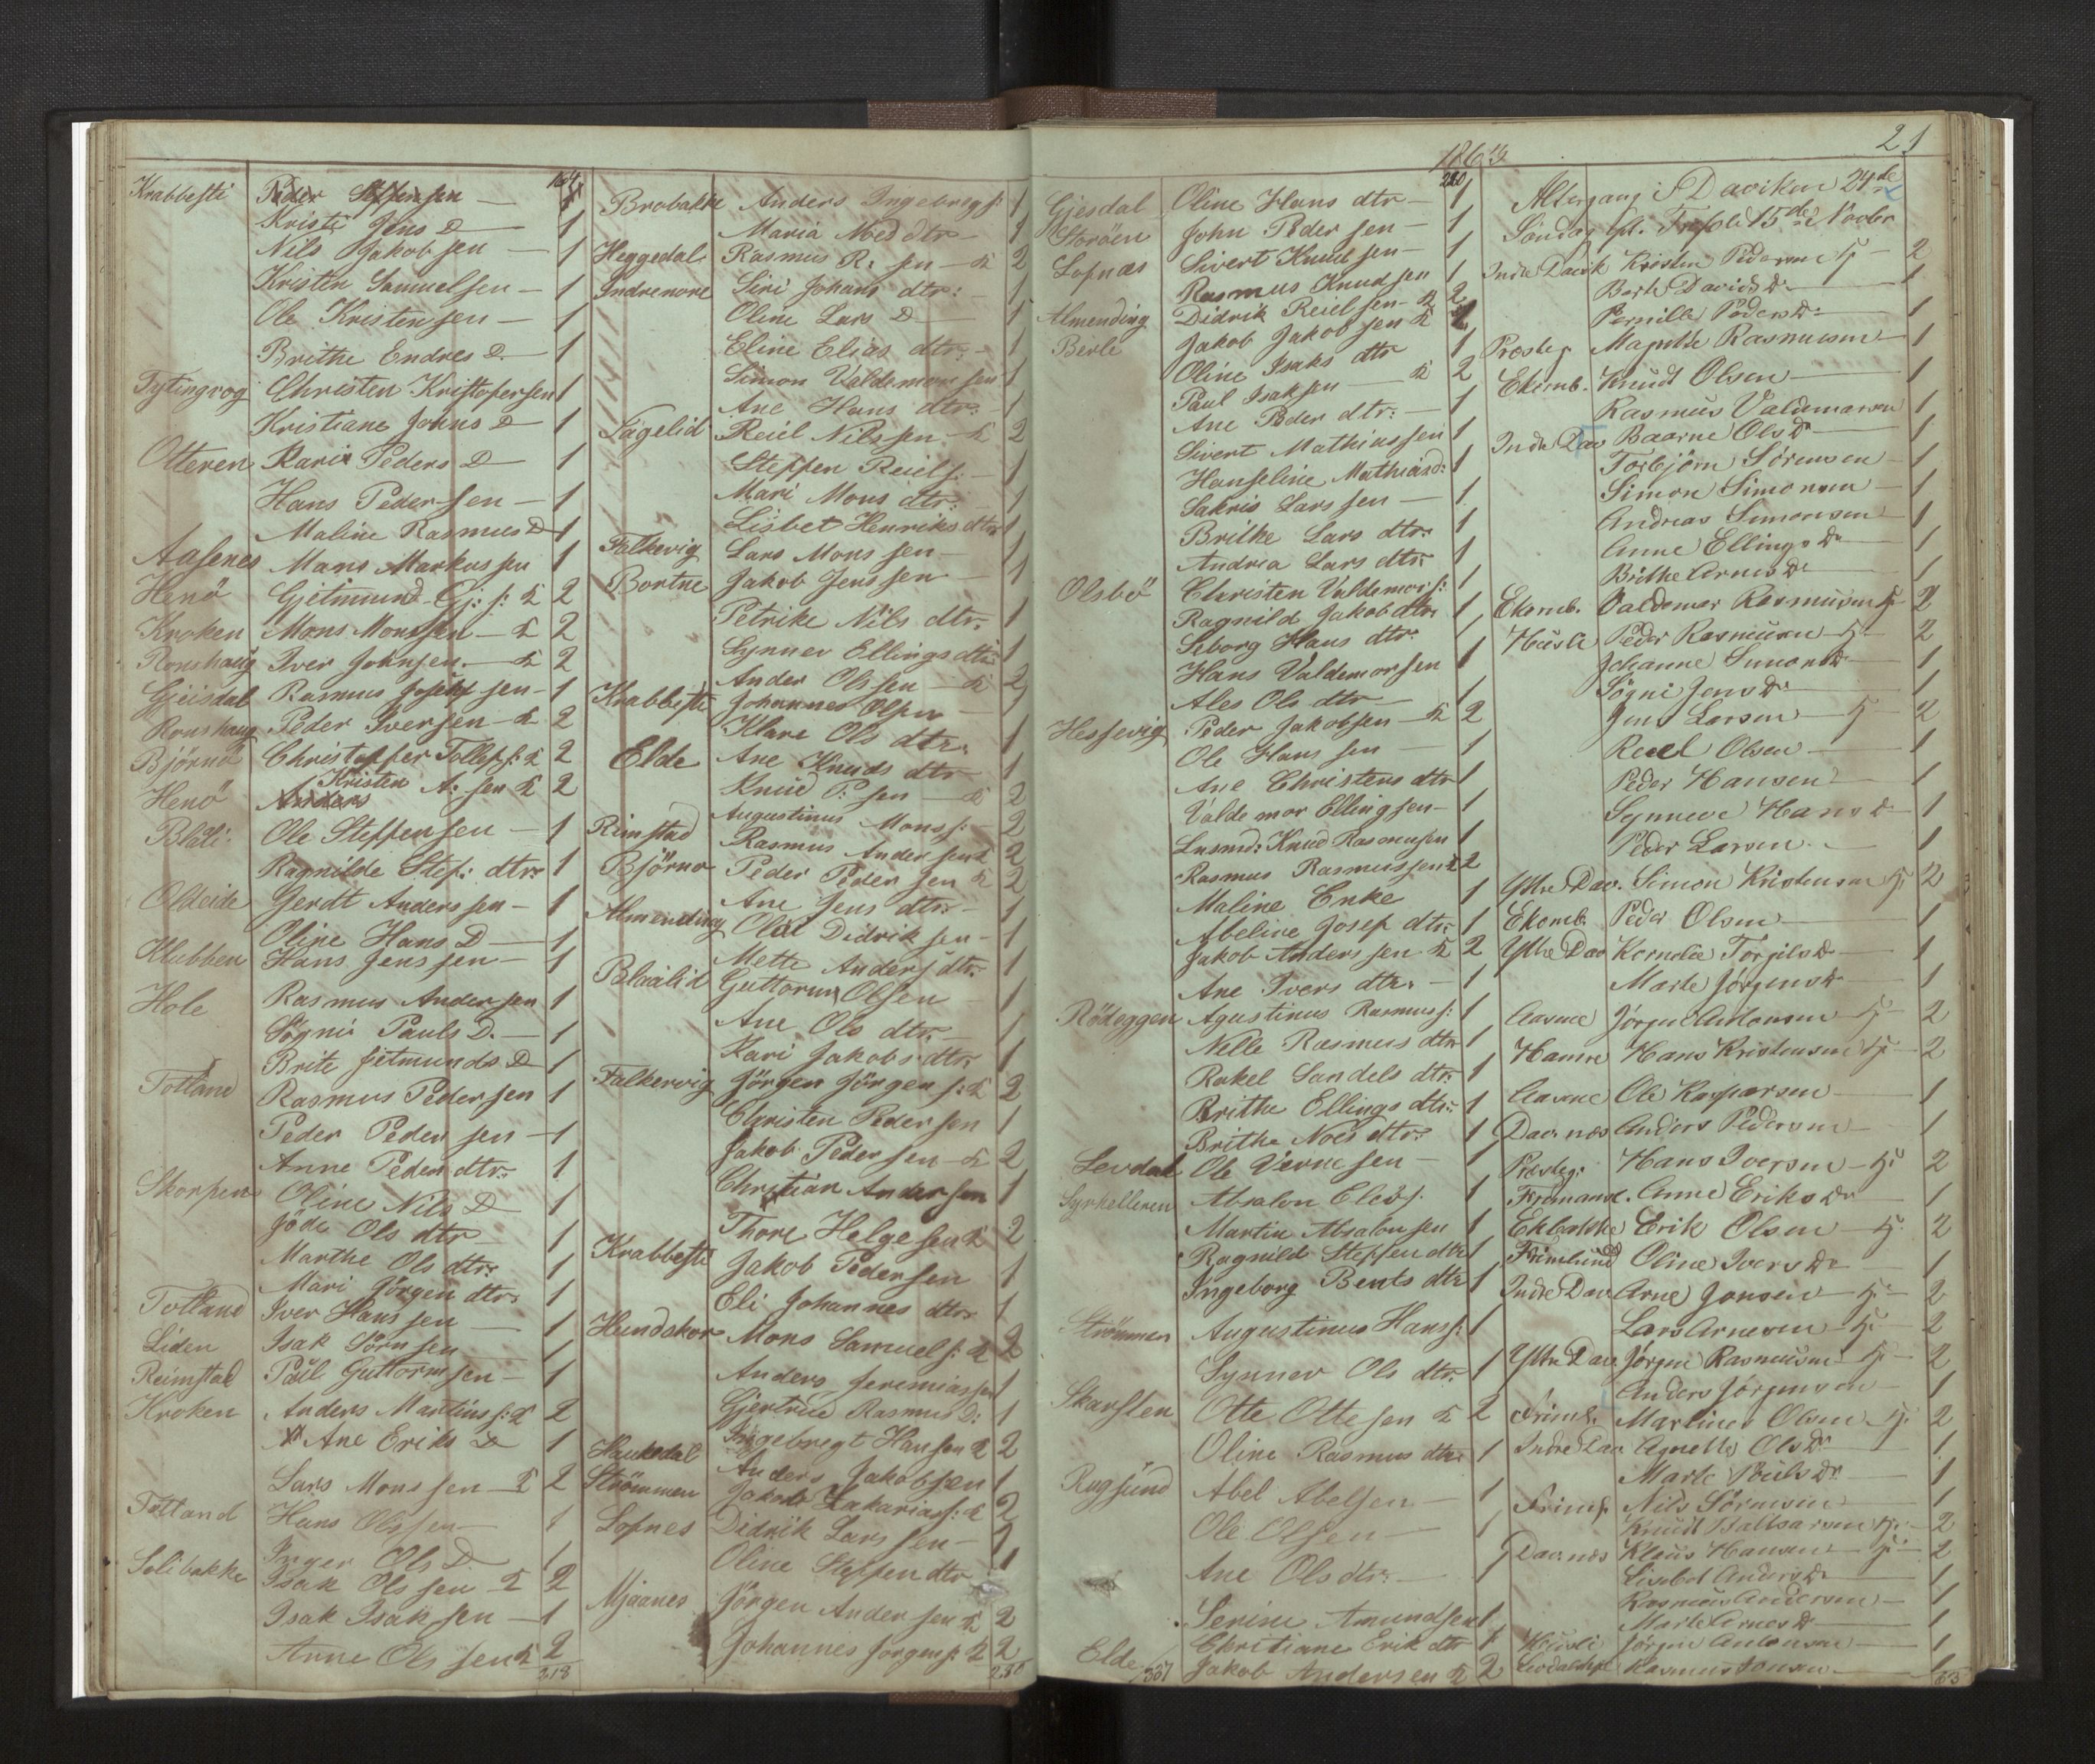 164
Krabbesti Peder Steffensen — 1
Kristi Jens D — 1
Nils Jakobsen — 1
Kristen Samuelsen — 1
Ole Kristensen — 1
Brithe Endres D. — 1
Tytingvog Christen Kristofersen 1
Kristiane Johns D 1
Otteren Kari Peders D — 1
Hans Pedersen — 1
Maline Rasmus D 1
Aasenes Mans Markussen 1
Henö Gjetmund Gj: s: 2
Kroken Mons Monssen — 2
Ronshaug Iver Johnsen — 2
Gjeisdal Rasmus Josefsen — 1
Ronshaug Peder Iversen — 2
Björnö Christoffer Tollefs: 2
Henö Kristen A: sen 2
Blåli Ole Steffensen — 1
Ragnilde Stef: dtr: 1
Oldeide Gerdt Anderssen — 1
Oline Hans D — 1
Klubben Hans Jenssen — 1
Hole Rasmus Andersen 1
Sögni Pauls D. — 1
Brite Gitmunds D 1
Totland Rasmus Pedersen 1
Peder Pedersen — 1
Anne Peder dtr: 1
Skorpen Oline Nils D 1
Jöde Ols dtr 1
Marthe Ols dtr: 1
Mari Jörgen dtr: 1
Totland Iver Hanssen — 1
Liden Isak Sörnsen 1
Reimstad Paul Guttormsen — 1
Kroken Anders Martins: 2
Ane Eriks D 1
Lars Monssen 2
Totland Hans Olssen — 1
Inger Ols D 1
Solibakke Isak Olssen 2
Isak Isaksen — 1
Anne Olssen 2
218
Brobakke Anders Ingebregs: 1
Maria Mod dtr — 1
Heggedal Rasmus R: sen — 2
Indrenore Siri Johans dtr: — 1
Oline Lars D — 1
Eline Elias dtr: — 1
Simon Valdemorsen 1
Ane Hans dtr: — 1
Lagelid Reiel Nilssen 2
Steffen Reiels: — 1
Mari Mons dtr: 1
Lisbet Henriks dtr 1
Falkevig Lars Monssen — 1
Bortne Jakob Jenssen — 1
Petrike Nils dtr. 1
Synnev Ellings dtr 1
Ander Olssen — 2
Krabbesti Johannes Olsen — 1
Klare Ols dtr. 1
Elde Ane Knuds dtr 1
Knud P: sen — 2
Augustinus Monss: 2
Rimstad Rasmus Andersen 2
Björnö Peder Pedersen 2
Ane Jens dtr: — 1
Almending Olai Didriksen — 1
Mette Anders dtr: 1
Blaalid Guttorm Olsen — 1
Ane Ols dtr: — 1
Kari Jakobs dtr 1
Falkervig Jörgen Jörgens: 2
Christen Pedersen 1
Jakob Pedersen — 2
Christian Andersen 1
Thore Helgesen 2
Krabbesti Jakob Pedersen 1
Eli Johannes dtr: 1
Hundskor Mons Samuels: 2
Anders Jeremiassen 1
Gjertrud Rasmus D: 1
Ingebregt Hansen 2
Haukedal Anders Jakobsen 1
Strömmen Jakob Zakarias: 2
Lofnes Didrik Larssen — 1
Oline Steffen dtr 1
Mjaanes Jörgen Andersen 2
Johannes Jorgens: 2
21
Gjesdal Oline Hans dtr — 1
Storöen John Pedersen — 1
Lofnæs Sivert Knudsen — 1
Rasmus Knudsen 1
Almending Didrik Reielsen — 2
Berle Jakob Jakobsen
Oline Isaks dtr 1
Paul Isaksen — 2
Ane Peder dtr: — 1
Sivert Mathiassen 1
Hanseline Mathiasd: 1
Sakris Larssen — 1
Brithe Lars dtr: 1
Andrea Lars dtr: 1
Olsbö Christen Valdemors: 1
Ragnild Jakob dtr 1
Seborg Hans dtr: 1
Hans Valdemorsen 1
Ales Ols dtr — 1
Hessevig Peder Jakobsen — 2
Ole Hanssen — 1
Ane Christens dtr 1
Valdemor Ellingsen — 1
Lusmd: Knud Rasmusen 1
Rasmus Rasmussen 2
Maline Enke 1
Abeline Josef dtr: 1
Jakob Anderssen 2
Ane Ivers dtr. — 1
Rödeggen Agustinus Rasmuss: 1
Nelle Rasmus dtr 1
Rakel Sandels dtr: 1
Brithe Ellings dtr: 1
Brithe Noes dtr: 1
Levdal Ole Vernesen — 1
Syrhelleren Absalon Elias: 1
Martin Absalonsen 1
Ragnild Steffen dtr 1
Ingeborg Bents dtr 1
Strömmen Augustinus Hans: 1
Synnev Ols dtr. 1
Skarsten Otte Ottesen 2
Oline Rasmus dtr. 1
Rugsund Abel Abelsen — 1
Ole Olsen — 1
Ane Ols dtr: — 1
Serine Amundsen 1
Christiane Erik dtr 1
Elde Jakob Andersen 2
307
Altergang i Daviken 24de
Söndag
Indre Davik Kristen Pedersen — 2
Berte Davids Dr — 1
Pernille Peders Dr 1
Præsteg Magnthe Rasmussen — 1
Ekornb. Knudt Olsen — 1
Rasmus Valdemarsen 1
Indre Dav Baarne Ols Dr — 1
Torbjörn Sörensen — 1
Simon Simonsen — 1
Andreas Simonsen — 1
Anne Ellings Dr — 1
Brithe Arnes Dr 1
Ekornb. Valdemar Rasmussen 2
Husli Peder Rasmusen — 2
Johanne Simons Dr 1
Sögni Jens Dr 1
Jens Larsen — 2
Reiel Olsen — 1
Peder Hansen — 1
Synneve Hans Dr 1
Peder Larsen — 1
Ytre Dav. Simon Kristensen 2
Ekornb. Peder Olsen — 1
Ytre Dav Kornelie Torgils Dr 1
Marte Jörgens Dr 1
Aasene Jörgen Antonsen — 2
Hamre Hans Kristensen — 2
Aasene Ole Kasparsen — 1
Davnæs Anders Pedersen — 1
Præsteg. Hans Iversen — 2
Anne Eriks Dr — 1
Erik Olsen — 2
Oline Ivers Dr — 1
Indre Dav Arne Jonsen — 2
Lars Arnesen — 2
Ytre Dav. Jörgen Rasmusen — 2
Anders Jörgensen — 1
Martines Olsen 2
Indre Dav Agnette Ols Dr 1
Marte Pouls Dr 1
Nils Sörensen 1
Knudt Baltsarsen 2
Davnæs Klaus Hansen — 2
Lisebet Anders Dr 1
Rasmus Andersen — 1
Marte Arnes Dr 1
Husli Jörgen Antonsen — 1
Rasmus Jonsen — 1
63